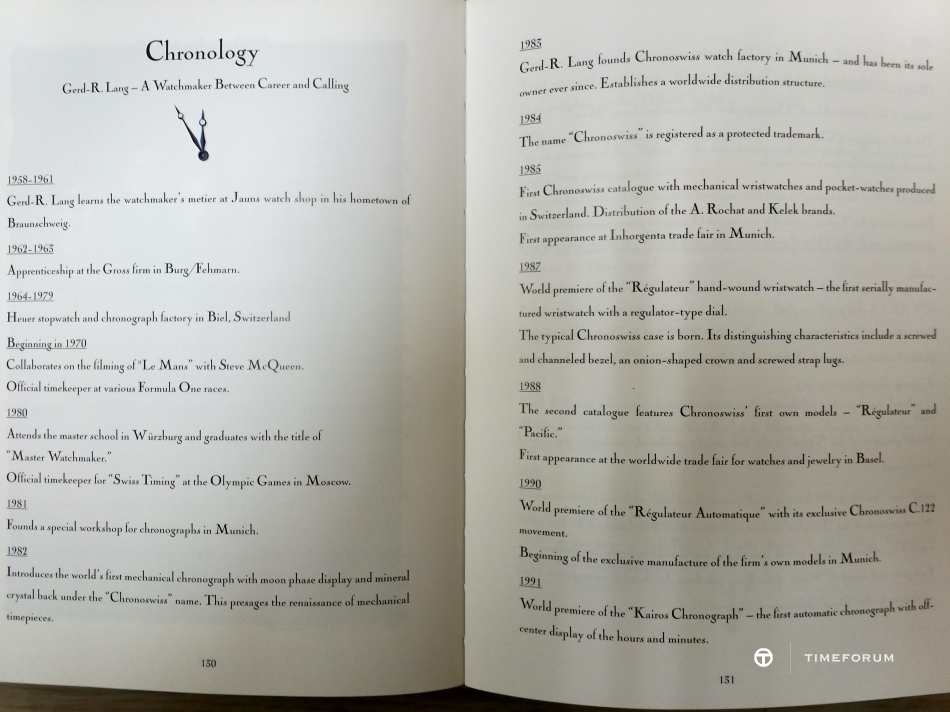 Chronology
Gerd-R. Lang – A Watchmaker Between Career and Calling
1958-1961
Gerd-R. Lang learns the watchmaker's metier at Jauns watch shop in his hometown of
Braunschweig.
1962-1963
Apprenticeship at the Gross firm in Burg/Fehmarn.
1964-1979
Heuer stopwatch and chronograph factory in Biel, Switzerland
Beginning in 1970
Collaborates on the filming of "Le Mans" with Steve McQueen.
Official timekeeper at various Formula One races.
1980
Attends the master school in Würzburg and graduates with the title of
"Master Watchmaker."
Official timekeeper for "Swiss Timing" at the Olympic Games in Moscow.
1981
Founds a special workshop for chronographs in Munich.
1982
Introduces the world's first mechanical chronograph with moon phase display and mineral
crystal back under the "Chronoswiss" name. This presages the renaissance of mechanical
timepieces.
130
1983
Gerd-R. Lang founds Chronoswiss watch factory in Munich – and has been its sole
owner ever since. Establishes a worldwide distribution structure.
1984
The name "Chronoswiss" is registered as a protected trademark.
1985
First Chronoswiss catalogue with mechanical wristwatches and pocket-watches produced
in Switzerland. Distribution of the A. Rochat and Kelek brands.
First appearance at Inhorgenta trade fair in Munich.
1987
World premiere of the "Régulateur" hand-wound wristwatch – the first serially manufac-
tured wristwatch with a regulator-type dial.
The typical Chronoswiss case is born. Its distinguishing characteristics include a screwed
and channeled bezel, an onion-shaped crown and screwed strap lugs.
1988
The second catalogue features Chronoswiss' first own models – "Régulateur" and
"Pacific."
First appearance at the worldwide trade fair for watches and jewelry in Basel.
1990
World premiere of the "Régulateur Automatique" with its exclusive Chronoswiss C.122
movement.
Beginning of the exclusive manufacture of the firm's own models in Munich.
1991
World premiere of the "Kairos Chronograph" – the first automatic chronograph with off-
center display of the hours and minutes.
131
TIMEFORUM